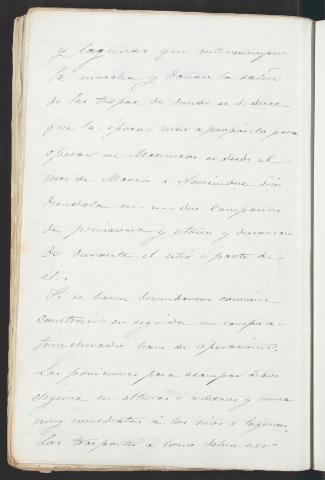 y lagunas que entorpecen
la marcha y dañan la salud
de las tropas, de donde se deduce
que la época mas a propósito para
operar en Marruecos es desde el
mes de Marzo á Noviembre divi
diendola en dos campañas
de primavera y otoño y descansan
do durante el estio ó parte de
el.
Si se hacen desembarcos conviene
construir en seguida un campo a-
trincherado base de operaciones.
Las posiciones para acampar deben
elegirse en alturas ó riberas y nunca
muy inmediatas á los rios ó lagunas.
Los trasportes á lomo deben ser-